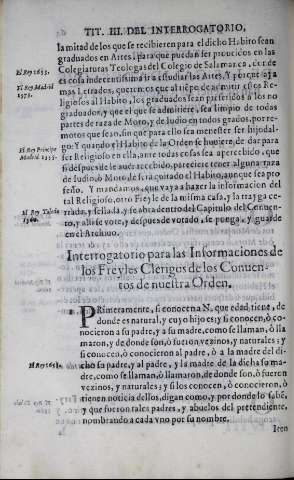 TIT. III. DEL INTERROGATORIO,
la mitad de los que se recibieren para el dicho Habito sean
graduados en Artes, para que puedan ser proueidos en las
Colegiaturas Teologas del Colegio de Salamanca, donde
es cosa indecentissima ir a estudiar las Artes, Y porque aya
mas Letrados, queremos que al tiẽpo de admitir estos Re-
ligiosos al Habito, los graduados sean preferidos à los no
graduados, y que el que se admitiere, sea limpio de todas
partes de raza de Moro, y de Iudio en todos grados, por re-
motos que sean, sin que para ello sea menester ser hijodal-
go: Y quando el Habito de la Orden se huuiere de dar para
ser Religioso en ella, ante todas cosas sea apercebido, que
si despues de le auer recebido, pareciere tener alguna raza
de Iudio, ò Moro, le serà quitado el Habito, aunque sea pro
feso. Y mandamos, que vaya a hazer la informacion del
tal Religioso, otro Freyle de la misma casa, y la trayga ce-
rrada, y sellada, y se abra dentro del Capitulo del Conuen-
to, y alli se vote, y despues de votado, se ponga, y guarde
en el Archiuo.
El Rey 1653.
El Rey Madrid
1573.
El Rey Principe
Madrid 1553.
El Rey Toledo
1560.
Interrogatorio para las Informaciones de
los Freyles Clerigos de los Conuen-
tos de nuestra Orden.
PRimeramente, si conocen a N. que edad tiene, de
donde es natural, y cuyo hijo es: y si conocen, ò co-
nocieron a su padre, y a su madre, como se llaman, ò lla
maron, y de donde son, ò fueron vezinos, y naturales: y
si conocen, ò conocieron al padre, ò a la madre del di-
cho su padre, y al padre, y la madre de la dicha su ma-
dre, como se llaman, ò llamaron, de donde son, ò fueron
vezinos, y naturales: y si los conocen, ò conocieron, ò
tienen noticia dellos, digan como, y por donde lo sabẽ,
y que fueron tales padres, y abuelos del pretendiente,
nombrando a cada vno por su nombre.
El Rey 1653.
Iten